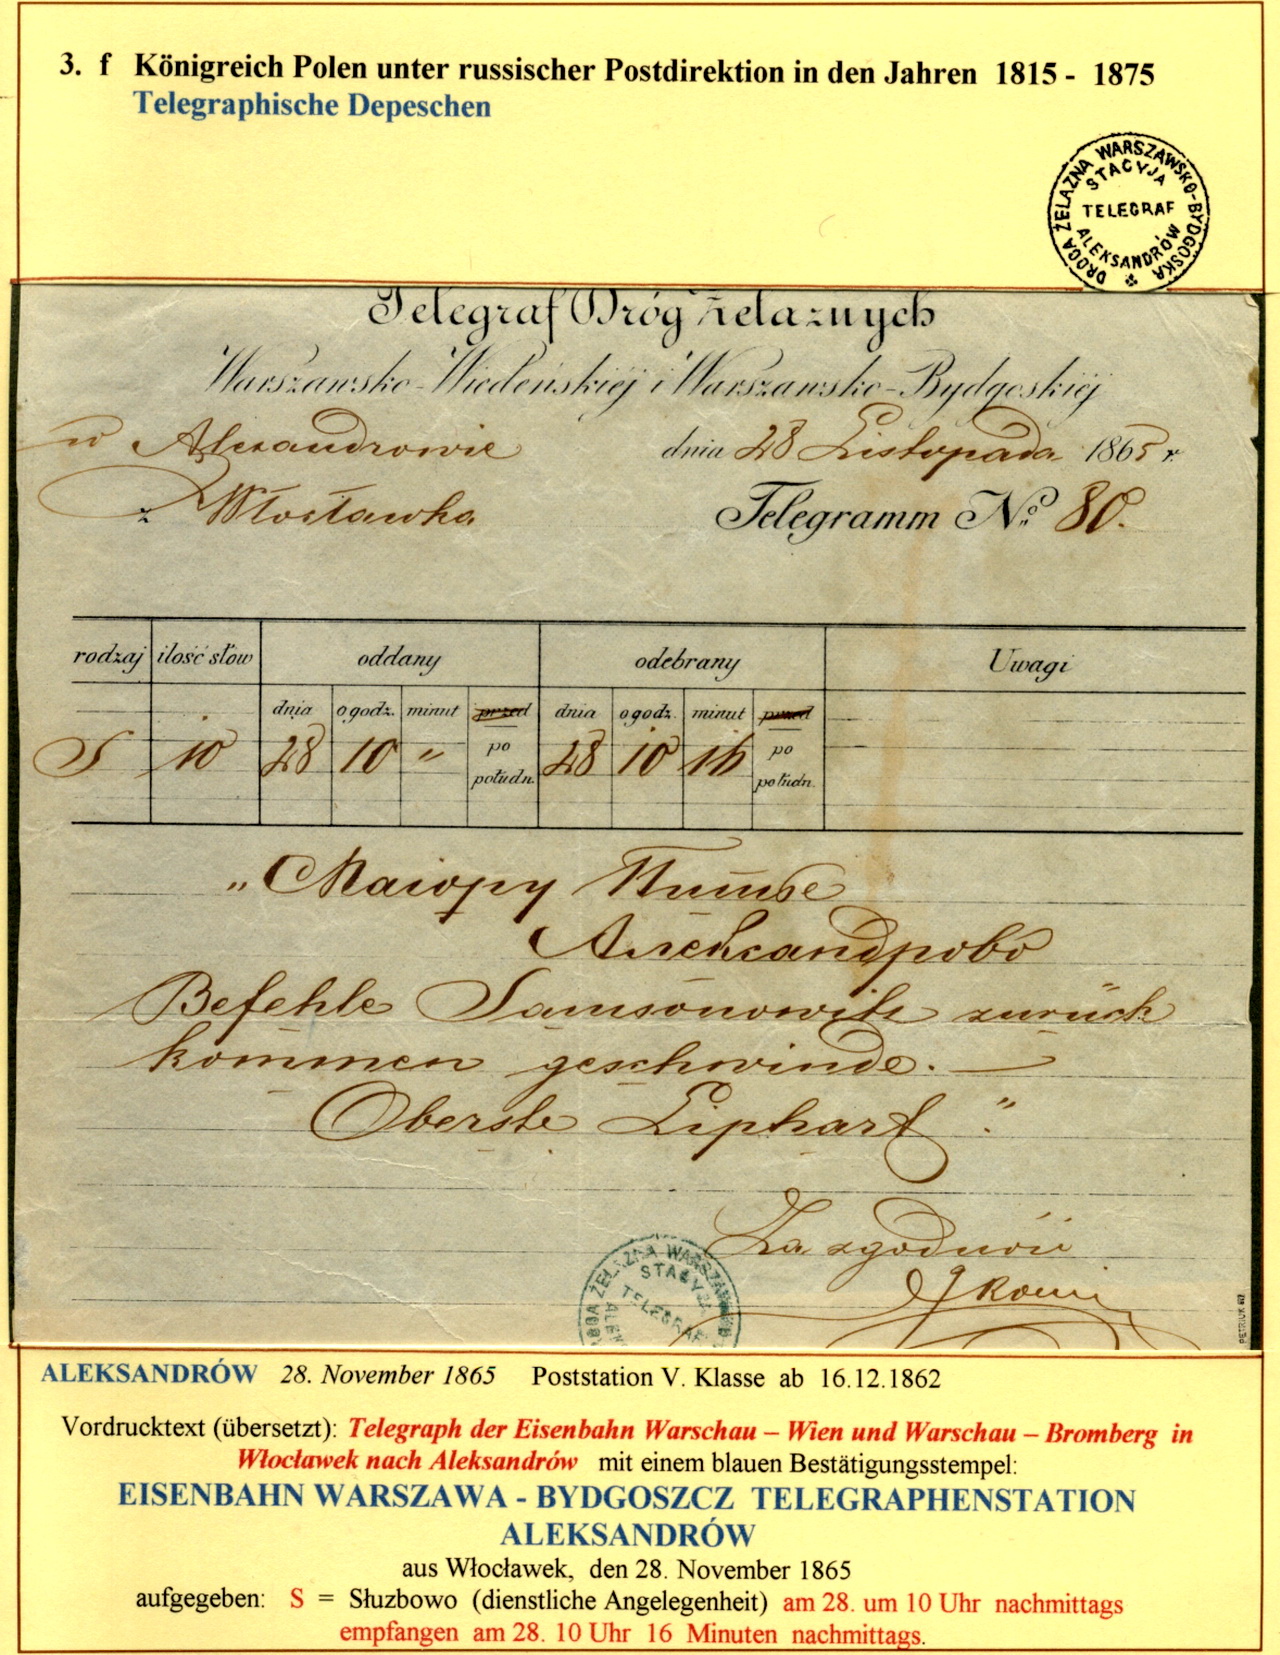 3. f Königreich Polen unter russischer Postdirektion in den Jahren 1815 - 1875
Telegraphische Depeschen
DROGA ŻELAZNA WARSZAWSKO-BYDGOSKA
STACYJA
TELEGRAF
ALEKSANDRÓW
Telegraf Dróg Żelaznych
Warszawsko-Wiedeńskiéj i Warszawsko-Bydgoskiéj
w Alexandrowie dnia 28 Listopada 1865 r.
z Włocławka Telegramm No. 80.
rodzaj ilość słow oddany odebrany Uwagi
dnia o godz. minut przed dnia o godz. minut przed
po po
S 10 28 10 " 28 10 16
połudn. połudn.
„Маіору
Александрово
Befehle Samsonowitz zurück
kommen geschwinde.
Oberste Liphart"
Za zgodność
DROGA ŻELAZNA WARSZAWSKO
STACYJA
TELEGRAF
PETRIUK
ALEKSANDRÓW 28. November 1865 Poststation V. Klasse ab 16.12.1862
Vordrucktext (übersetzt): Telegraph der Eisenbahn Warschau – Wien und Warschau – Bromberg in
Włocławek nach Aleksandrów mit einem blauen Bestätigungsstempel:
EISENBAHN WARSZAWA - BYDGOSZCZ TELEGRAPHENSTATION
ALEKSANDRÓW
aus Włocławek, den 28. November 1865
aufgegeben: S = Słuzbowo (dienstliche Angelegenheit) am 28. um 10 Uhr nachmittags
empfangen am 28. 10 Uhr 16 Minuten nachmittags.